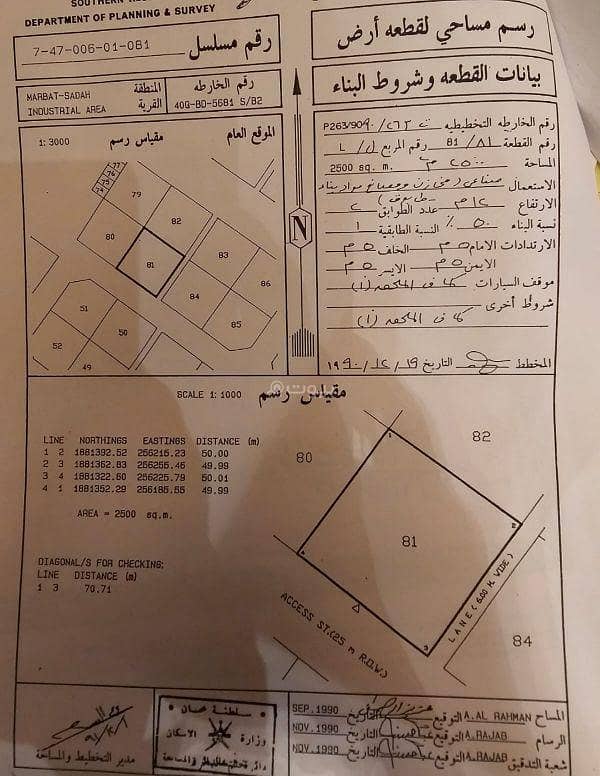 DEPARTMENT OF PLANNING & SURVEY
رسم مساحي لقطعه أرض
7-47-006-01-081
رقم مسلسل
بيانات القطعه وشروط البناء
MARBAT-SADAH
INDUSTRIAL AREA
المنطقة
القرية
رقم الخارطه
40Q-BD-5681 S/B2
1: 3000
مقياس رسم
الموقع العام
رقم الخارطه التخطيطيه
P263/90
رقم القطعة ٨١ / 81 رقم المربع
المساحة ٢٥٠٠ م 2500 sq. m.
الاستعمال صناعي
الارتفاع ١٢ م عدد الطوابق ٢
نسبة البناء ٥٠ ٪ النسبة الطابقية ١
الارتدادات الامام ٥ م الخلف ٥ م
الايمن ٥ م الايسر ٥ م
موقف السيارات كما في الملحقه (أ)
شروط أخرى
كما في الملحقه (أ)
المخطط التاريخ ١٩ / ١٢ / ١٩٩٠
77
79
82
80
81
83
86
84
85
51
50
52
49
N
SCALE 1: 1000
مقياس رسم
LINE NORTHINGS EASTINGS DISTANCE (m)
1 2 1881392.52 256215.23 50.00
2 3 1881362.83 256255.46 49.99
3 4 1881322.60 256225.79 50.01
4 1 1881352.29 256185.55 49.99
AREA = 2500 sq.m.
DIAGONAL/S FOR CHECKING:
LINE DISTANCE (m)
1 3 70.71
80
82
81
84
1
2
3
4
ACCESS ST.(25 m R.O.W.)
LANE (6.00 M. WIDE)
المساح A.AL RAHMAN التوقيع التاريخ SEP.1990
الرسام A.RAJAB التوقيع التاريخ NOV.1990
شعبة التدقيق A.RAJAB التوقيع التاريخ NOV.1990
سلطنة عمان
وزارة الاسكان
مدير التخطيط والمساحة